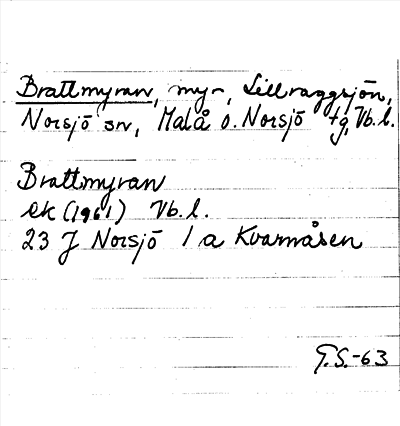 Brattmyran, myr, Lillraggsjön,
Norsjö sn, Malå o. Norsjö tg, Vb.l.
Brattmyran
ek (1961) Vb.l.
23 J Norsjö 1 a Kvarnåsen
G.S.-63